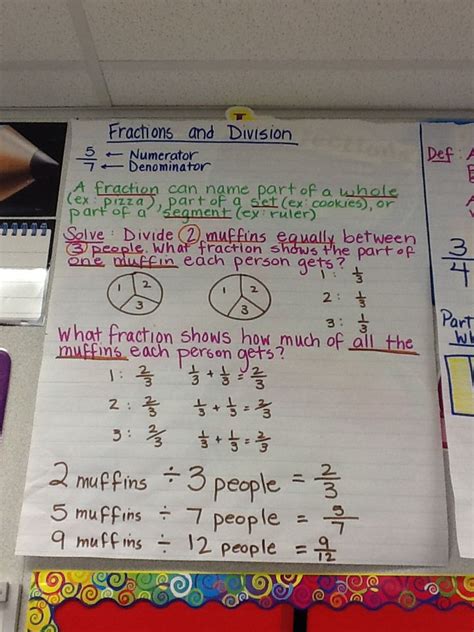 Fractions and Division
5/7 ← Numerator
← Denominator
A fraction can name part of a whole
(ex: pizza), part of a set (ex: cookies), or
part of a segment (ex: ruler)
Solve: Divide 2 muffins equally between
3 people. What fraction shows the part of
one muffin each person gets?
1 2 3
1 2 3
1: 1/3
2: 1/3
3: 1/3
What fraction shows how much of all the
muffins each person gets?
1: 2/3 1/3 + 1/3 = 2/3
2: 2/3 1/3 + 1/3 = 2/3
3: 2/3 1/3 + 1/3 = 2/3
2 muffins ÷ 3 people = 2/3
5 muffins ÷ 7 people = 5/7
9 muffins ÷ 12 people = 9/12
Def:
3/4
Part